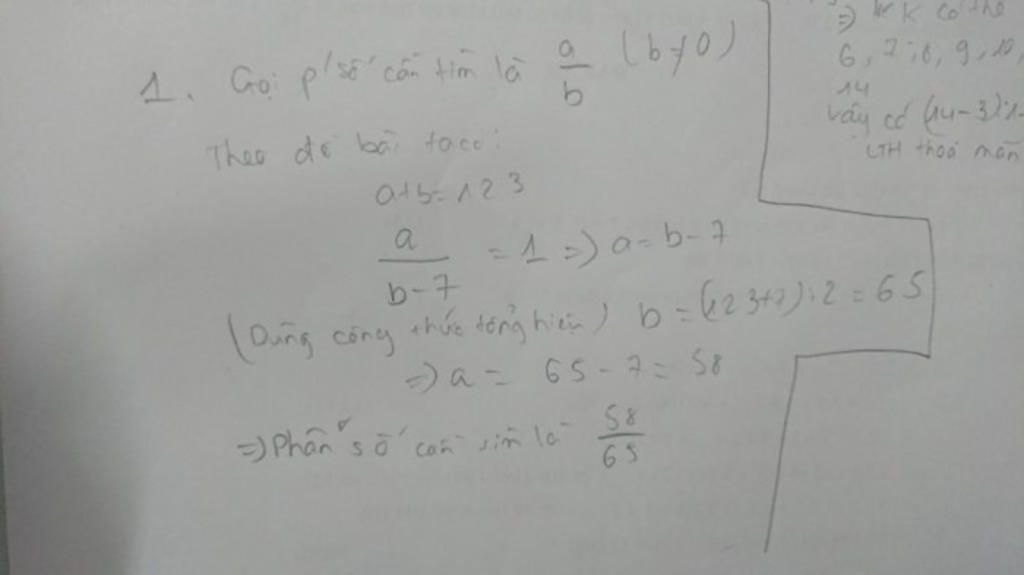 1. Gọi p/số cần tìm là a/b (b≠0)
Theo đề bài ta có:
a+b=123
a/b-7 = 1 => a=b-7
(Dùng công thức tổng hiệu) b=(123+7):2=65
=> a= 65-7=58
=> Phân số cần tìm là 58/65
=> K có thể
6, 7, 8, 9, 10,
14
Vậy có (14-3):1
LTH thoả mãn